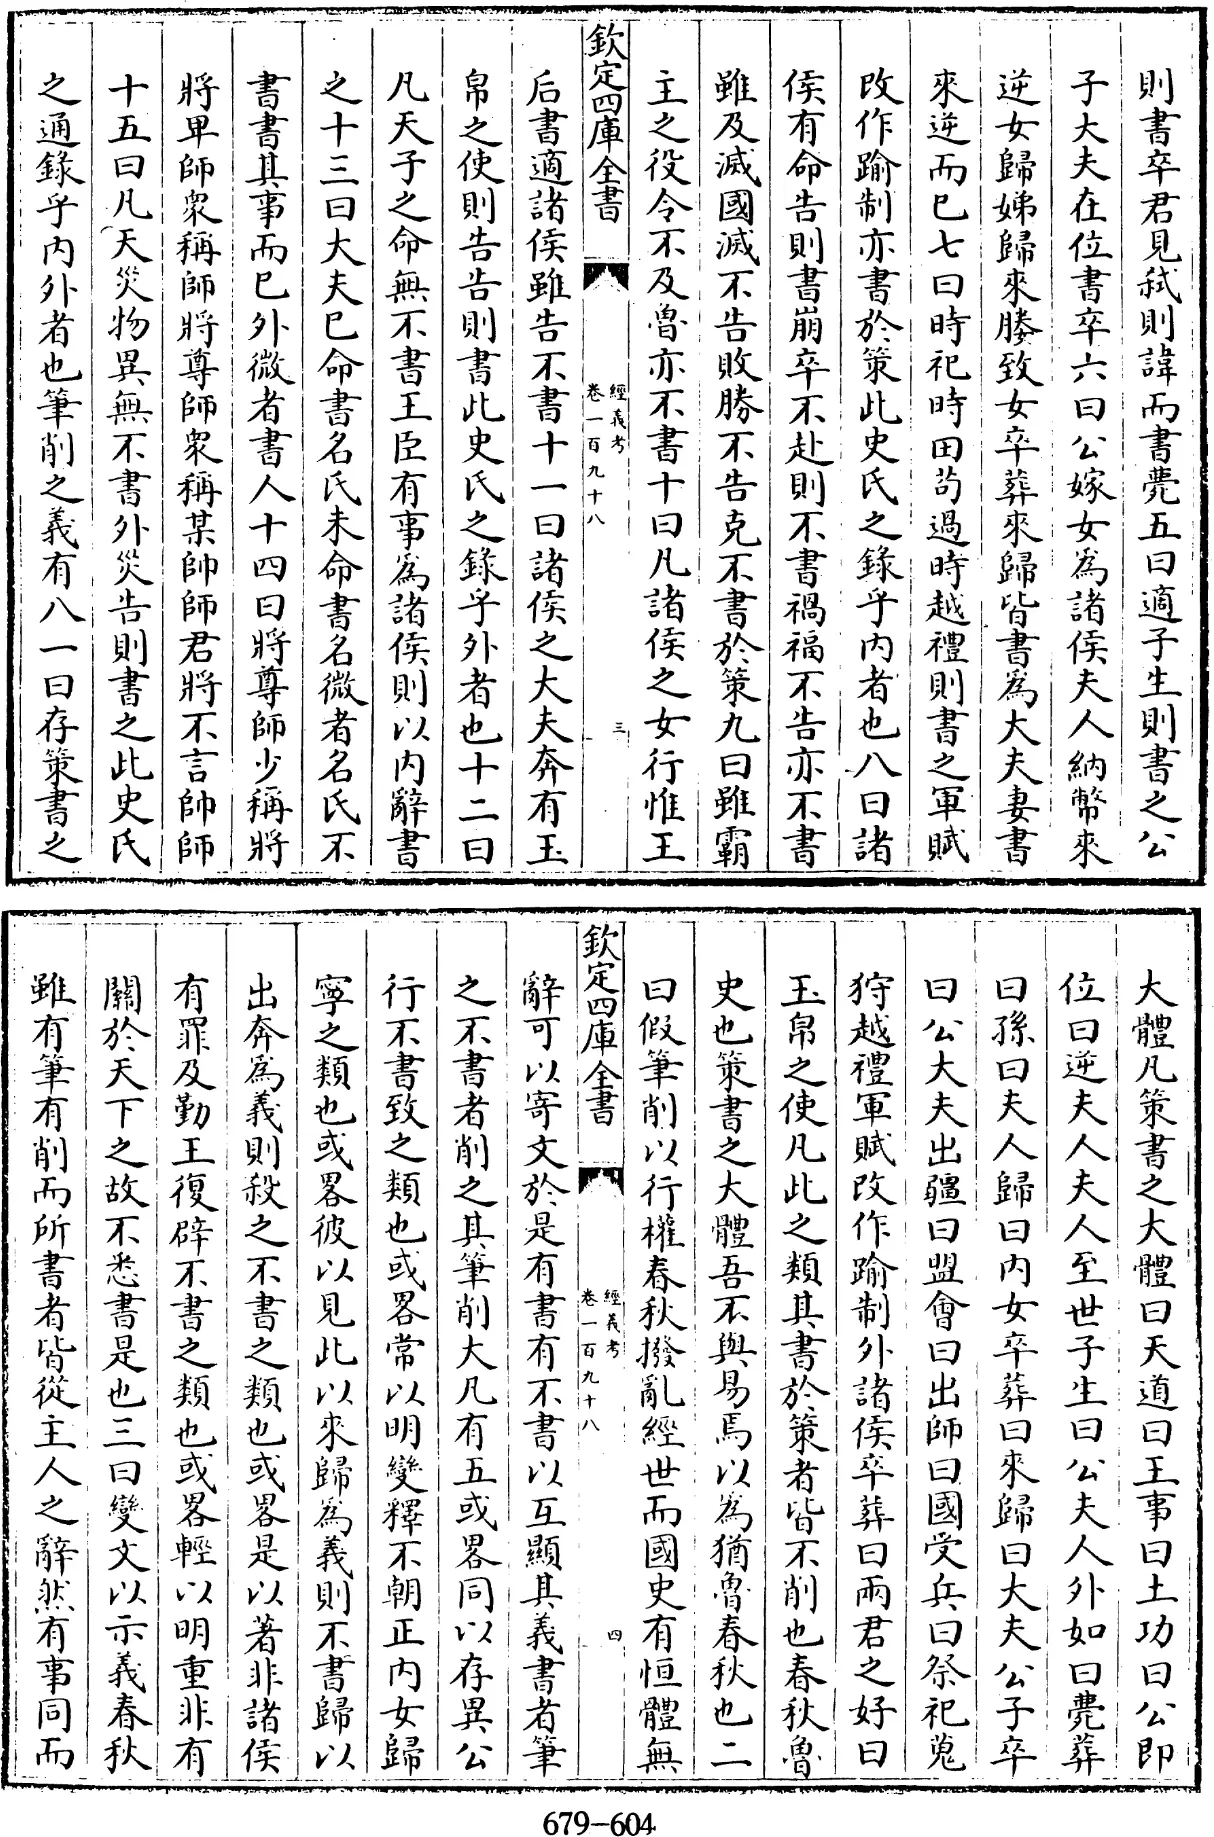 則書卒君見弑則諱而書薨五曰適子生則書之公
子大夫在位書卒六曰公嫁女為諸侯夫人納幣來
逆女歸娣歸來媵致女卒葬來歸皆書為大夫妻書
來逆而已七曰時祀時田苟過時越禮則書之軍賦
改作踰制亦書於策此史氏之錄乎内者也八曰諸
侯有命告則書崩卒不赴則不書禍福不告亦不書
雖及滅國滅不告敗勝不告克不書於策九曰雖霸
主之役令不及魯亦不書十曰凡諸侯之女行惟王
欽定四庫全書
經義考
卷一百九十八
三
后書適諸侯雖告不書十一曰諸侯之大夫奔有玉
帛之使則告告則書此史氏之錄乎外者也十二曰
凡天子之命無不書王臣有事為諸侯則以内辭書
之十三曰大夫已命書名氏未命書名微者名氏不
書書其事而已外微者書人十四曰將尊師少稱將
將卑師衆稱師將尊師衆稱某帥師君將不言帥師
十五曰凡天災物異無不書外災告則書之此史氏
之通錄乎内外者也筆削之義有八一曰存策書之
大體凡策書之大體曰天道曰王事曰土功曰公即
位曰逆夫人夫人至世子生曰公夫人外如曰薨葬
曰孫曰夫人歸曰内女卒葬曰來歸曰大夫公子卒
曰公大夫出疆曰盟會曰出師曰國受兵曰祭祀蒐
狩越禮軍賦改作踰制外諸侯卒葬曰兩君之好曰
玉帛之使凡此之類其書於策者皆不削也春秋魯
史也策書之大體吾不與易焉以為猶魯春秋也二
曰假筆削以行權春秋撥亂經世而國史有恒體無
欽定四庫全書
經義考
卷一百九十八
四
辭可以寄文於是有書有不書以互顯其義書者筆
之不書者削之其筆削大凡有五或畧同以存異公
行不書致之類也或畧常以明變釋不朝正内女歸
寧之類也或畧彼以見此以來歸為義則不書歸以
出奔為義則殺之不書之類也或畧是以著非諸侯
有罪及勤王復辟不書之類也或畧輕以明重非有
關於天下之故不悉書是也三曰變文以示義春秋
雖有筆有削而所書者皆從主人之辭然有事同而
679-604